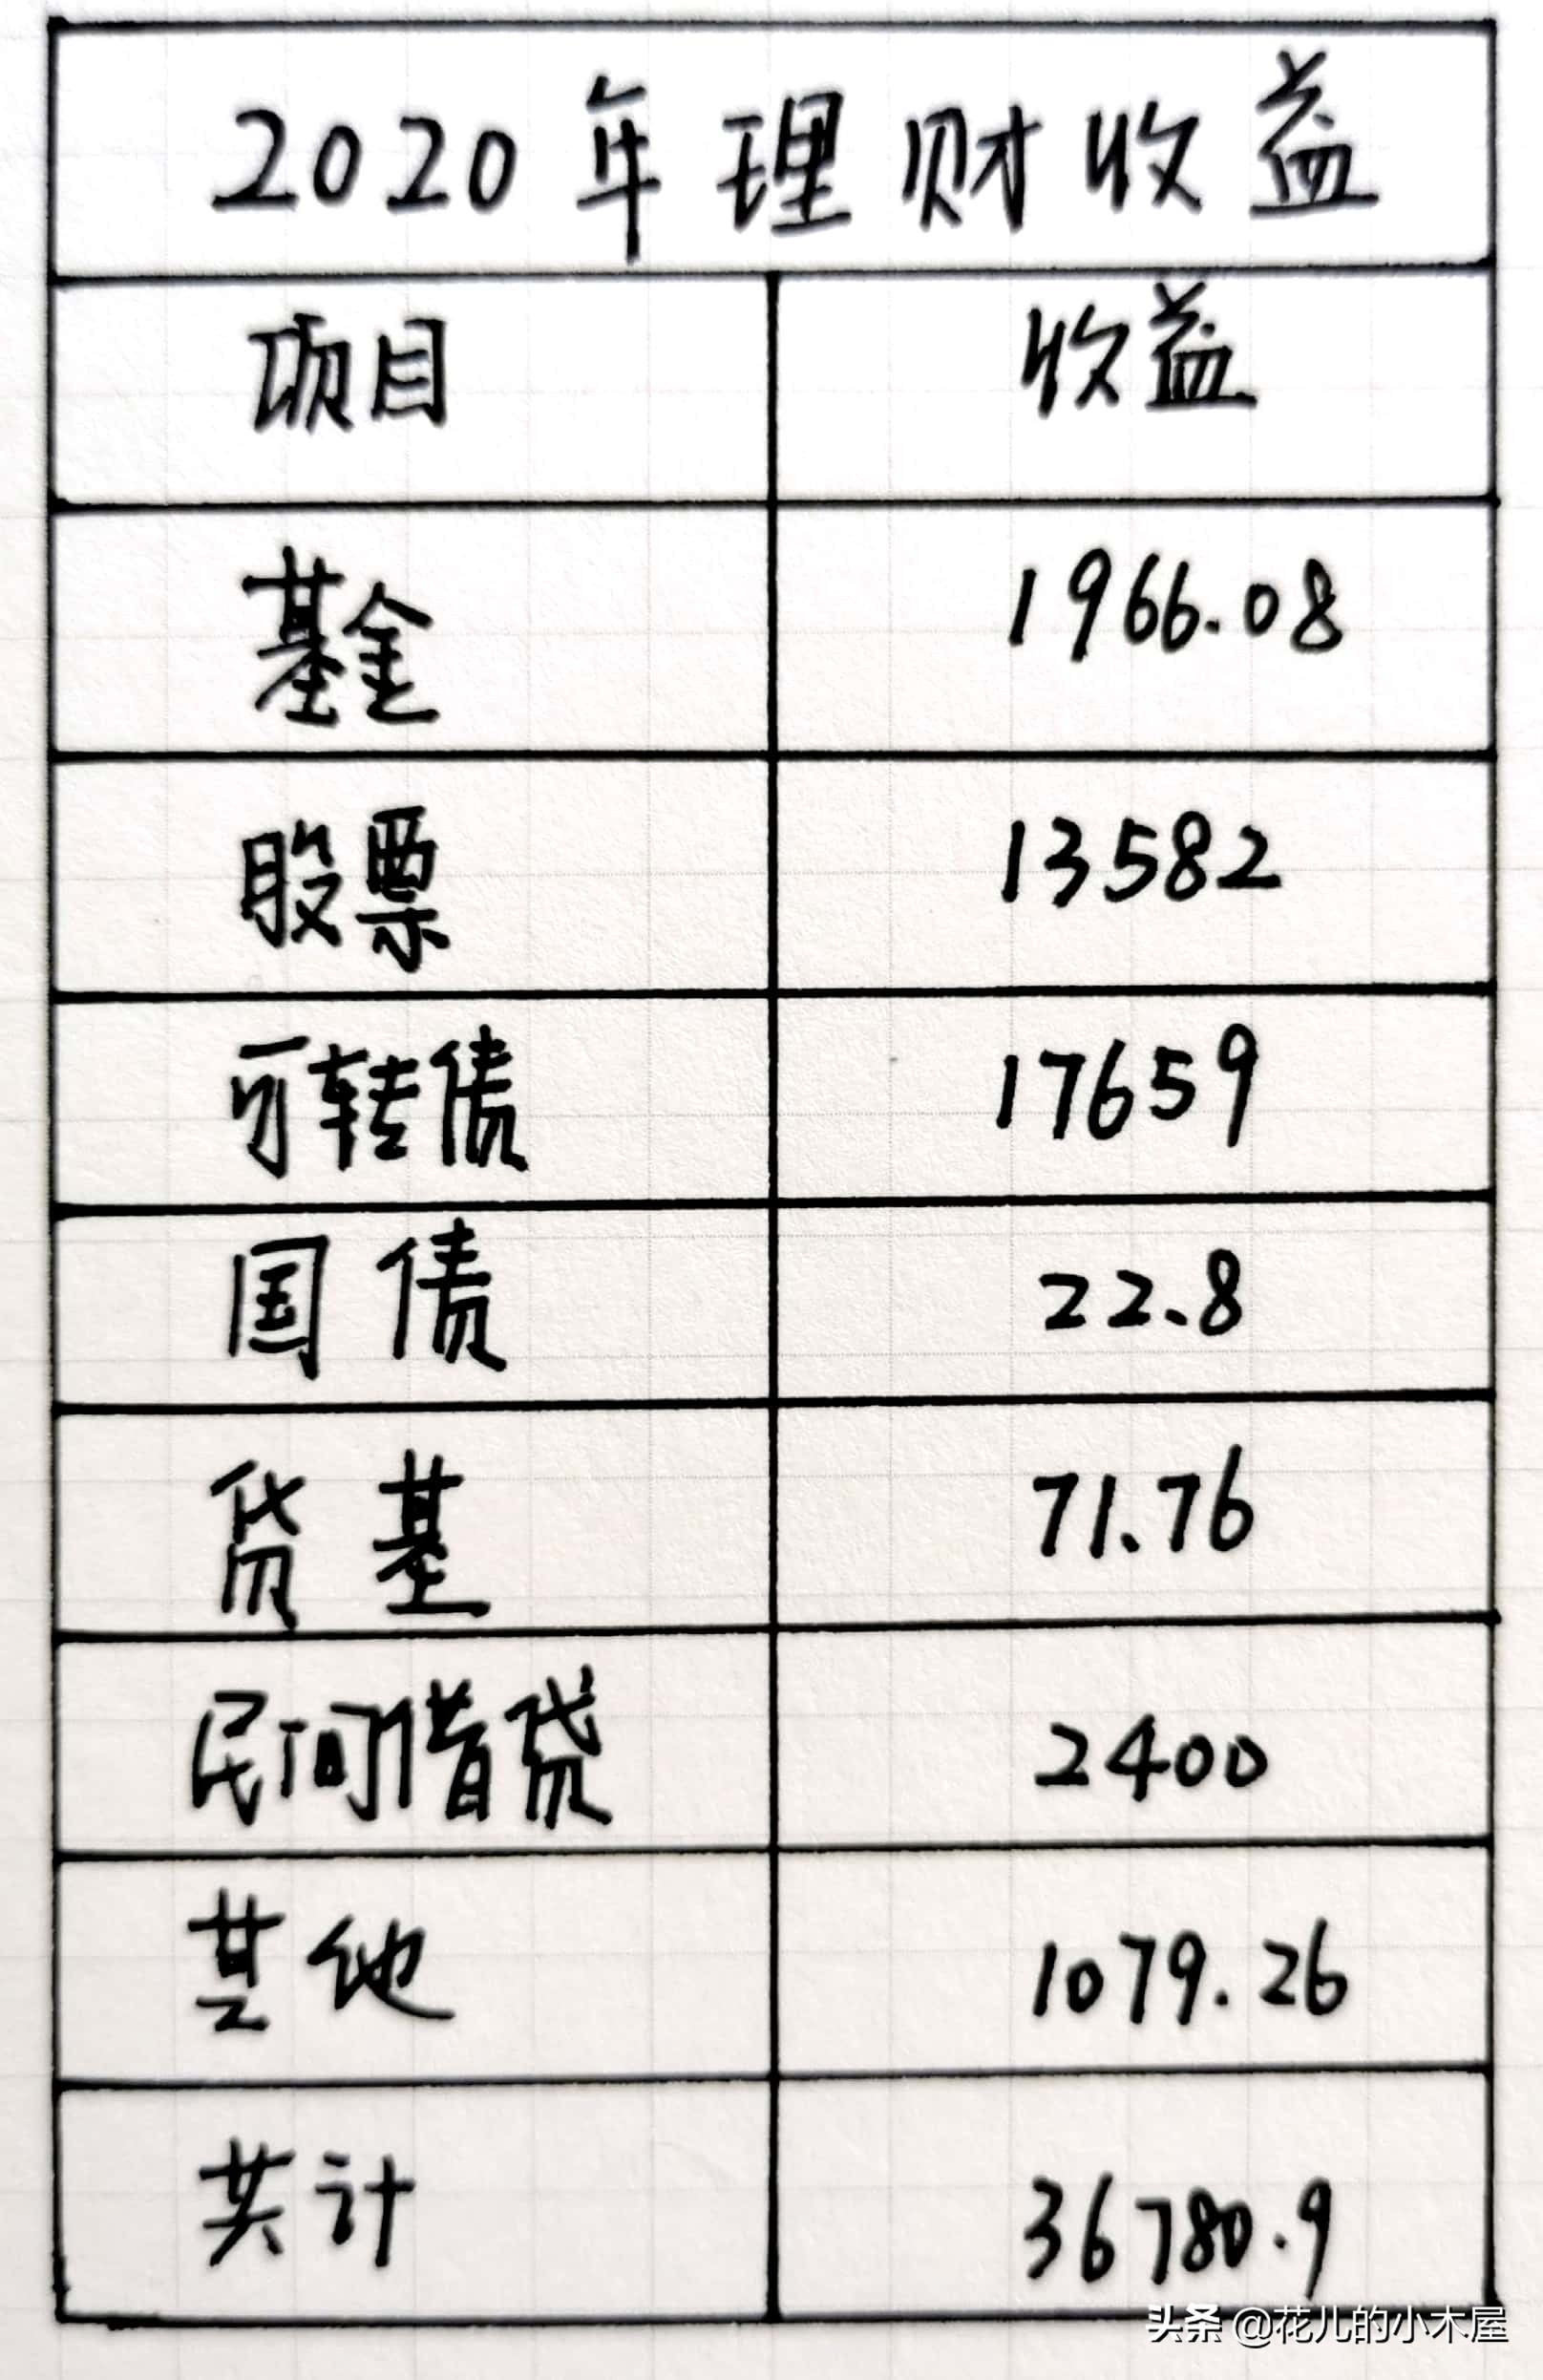 2020年理财收益
项目 收益
基金 1966.08
股票 13582
可转债 17659
国债 22.8
货基 71.76
民间借贷 2400
其他 1079.26
共计 36780.9
头条 @花儿的小木屋